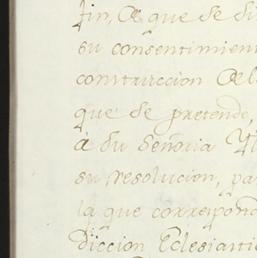 fin, de que se di
su consentimien
construccion del
que se pretende,
á su Señoria Yl
su resolucion, pa
la que correspon
diccion Eclesiasti